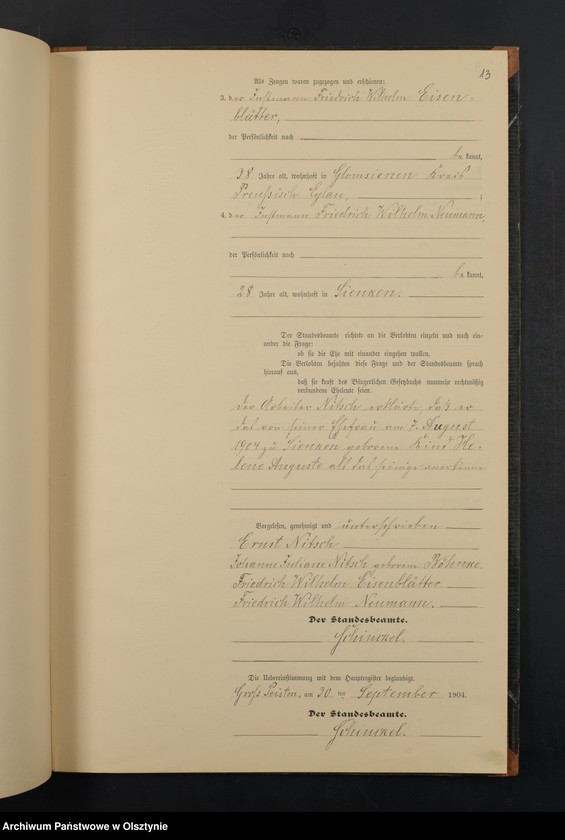 13
Als Zeugen waren zugezogen und erschienen:
3. der Instmann Friedrich Wilhelm Eisen-
blätter,
der Persönlichkeit nach
bekannt,
38 Jahre alt, wohnhaft in Glomsienen Kreis
Preußisch Eylau, ;
4. der Instmann Friedrich Wilhelm Neumann,
der Persönlichkeit nach
bekannt,
28 Jahre alt, wohnhaft in Sienken.
Der Standesbeamte richtete an die Verlobten einzeln und nach ein-
ander die Frage:
ob sie die Ehe mit einander eingehen wollen.
Die Verlobten bejahten diese Frage und der Standesbeamte sprach
hierauf aus,
daß sie kraft des Bürgerlichen Gesetzbuchs nunmehr rechtmäßig
verbundene Eheleute seien.
der Arbeiter Nitsch erklärte, daß er
das von seiner Ehefrau am 7. August
1904 zu Sienken geborene Kind He-
lene Auguste als das seinige anerkenne
Vorgelesen, genehmigt und unterschrieben
Ernst Nitsch
Johanne Juliane Nitsch geborene Böhnke.
Friedrich Wilhelm Eisenblätter
Friedrich Wilhelm Neumann.
Der Standesbeamte.
Schinckel.
Die Uebereinstimmung mit dem Hauptregister beglaubigt.
Groß Peisten, am 30 ten September 1904.
Der Standesbeamte.
Schinckel.
Archiwum Państwowe w Olsztynie